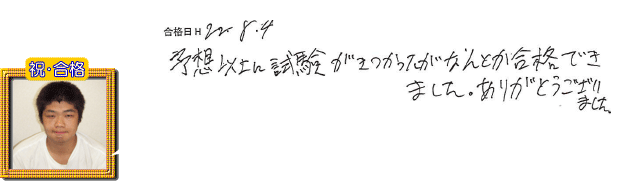 合格日 H 22 8.4
予想以上に試験がきつかったがなんとか合格でき
ました。ありがとうござい
ました。
祝・合格